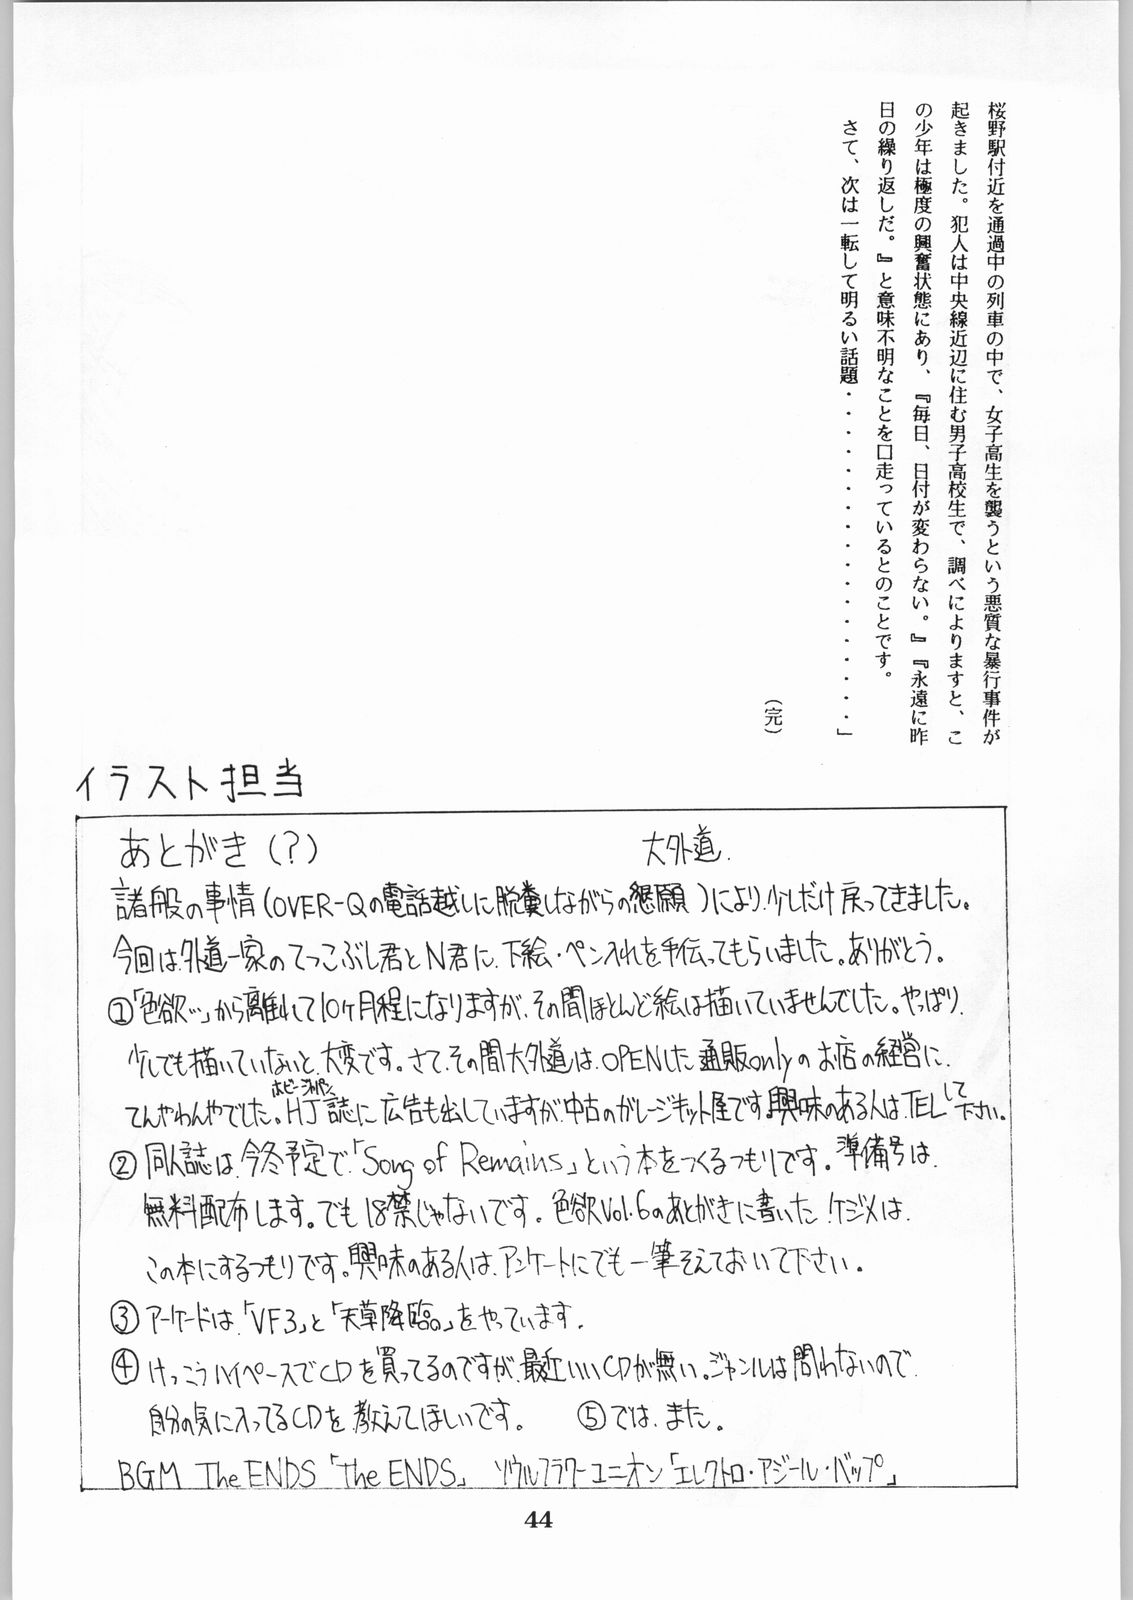 桜野駅付近を通過中の列車の中で、女子高生を襲うという悪質な暴行事件が
起きました。犯人は中央線近辺に住む男子高校生で、調べによりますと、こ
の少年は極度の興奮状態にあり、『毎日、日付が変わらない。』『永遠に昨
日の繰り返しだ。』と意味不明なことを口走っているとのことです。
さて、次は一転して明るい話題・・・・・・・・・・・・・・・・・・」
（完）
イラスト担当
あとがき（？）
大外道.
諸般の事情（OVER-Qの電話越しに脱糞しながらの懇願）により、少しだけ戻ってきました。
今回は、外道一家のてっこぶし君とN君に、下絵・ペン入れを手伝ってもらいました。ありがとう。
①「色欲…」から離れて10ヶ月程になりますが、その間ほとんど絵は描いていませんでした。やっぱり、
少しでも描いていないと、大変です。さて、その間大外道は、OPENした通販onlyのお店の経営に、
てんやわんやでした。HJ誌に広告も出していますが、中古のガレージキット屋です。興味のある人は、TELして下さい。
ホビージャパン
②同人誌は、今冬予定で、「Song of Remains」という本をつくるつもりです。準備号は、
無料配布します。でも18禁じゃないです。色欲Vol.6のあとがきに書いた、ケジメは、
この本にするつもりです。興味のある人は、アンケートにでも一筆そえておいて下さい。
③アーケードは、「VF3」と「天草降臨。」をやっています.
④けっこうハイペースでCDを買ってるのですが、最近いいCDが無い。ジャンルは問わないので、
自分の気に入ってるCDを、教えてほしいです。 ⑤では、また。
BGM The ENDS「the ENDS」 ソウルフラワーユニオン「エレクトロ・アジール・バップ」
44